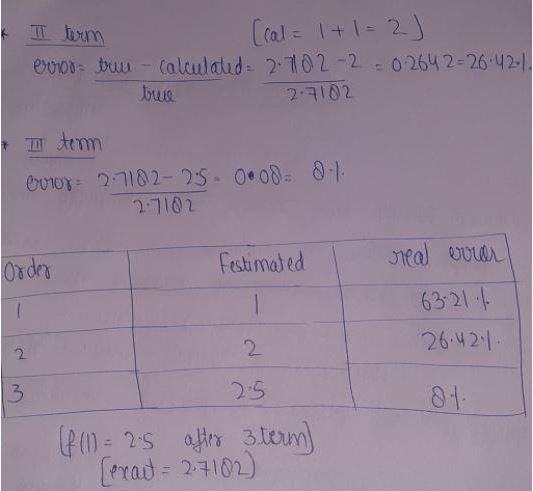 * II term [cal = 1 + 1 = 2]
error = true - calculated = 2.7182 - 2 = 0.2642 = 26.42%
true 2.7182
* III term
error = 2.7182 - 2.5 = 0.08 = 8%
2.7182
Order festimated real error
1 1 63.21%
2 2 26.42%
3 2.5 8%
[f(1) = 2.5 after 3 term]
[exact = 2.7182]